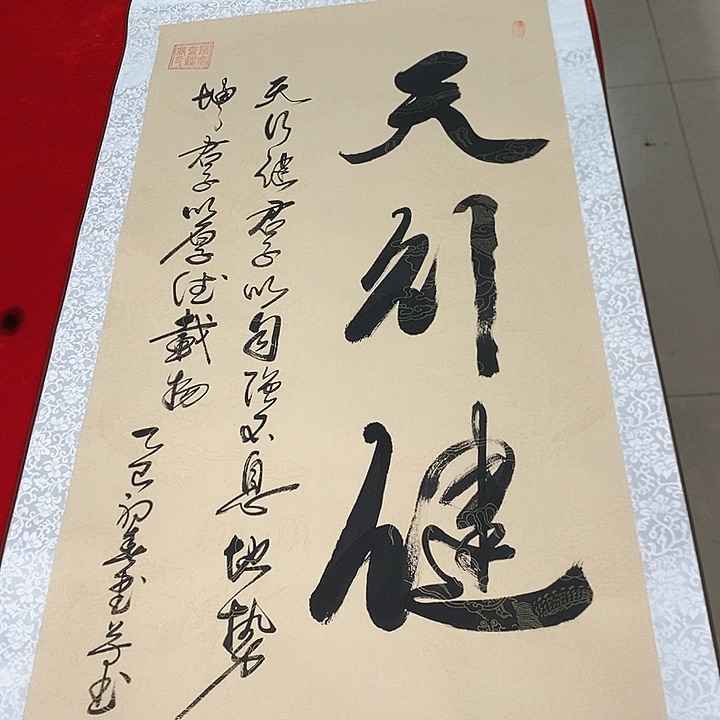 天行健
天行健君子以自强不息地势
坤君子以厚德載物
乙巳初春